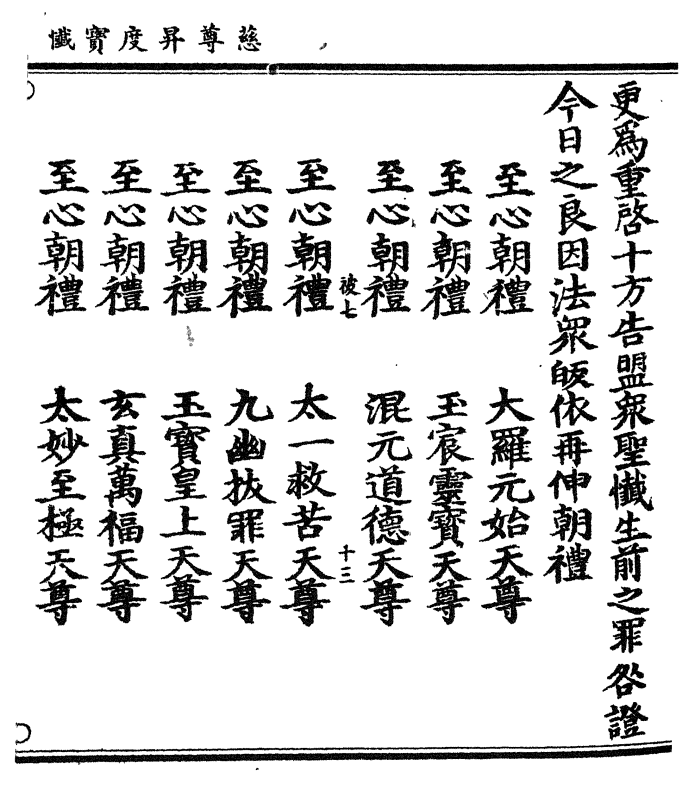 慈尊昇度寳懺
更爲重啓十方告盟衆聖懺生前之罪咎證
今日之良因法衆皈依再伸朝禮
至心朝禮　大羅元始天尊
至心朝禮　玉宸靈寳天尊
至心朝禮　混元道德天尊
被七　十三
至心朝禮　太一救苦天尊
至心朝禮　九幽拔罪天尊
至心朝禮　玉寳皇上天尊
至心朝禮　玄真萬福天尊
至心朝禮　太妙至極天尊